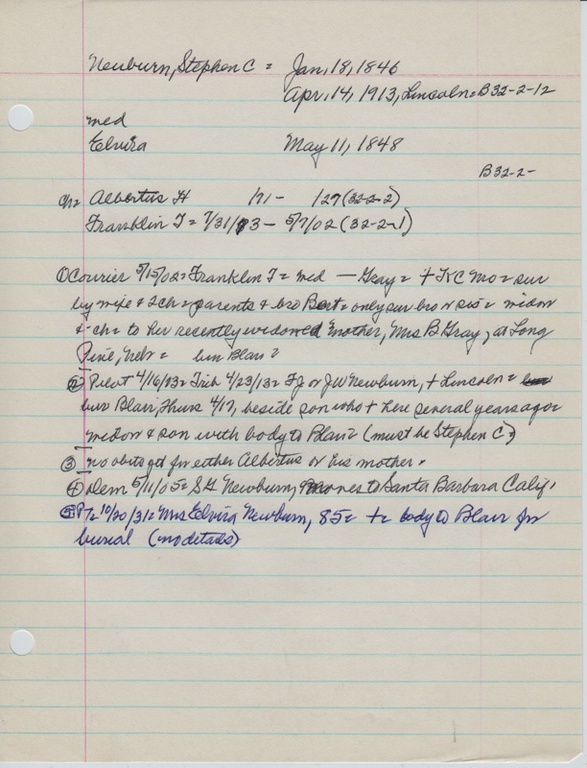 Newburn, Stephen C = Jan, 18, 1846
Apr, 14, 1913, Lincoln = B32-2-12
med
Elvira May 11, 1848
B32-2-
ch = Albertus H 1/71 - 1/27 (32-2-2)
Franklin T = 7/31/73 - 5/7/02 (32-2-1)
① Courier 5/15/02 = Franklin T = med — Gray = + KC Mo = sur
by wife & 2 ch = parents & bro Bert = only sur bro or sis = widow
& ch = to her recently widowed mother, Mrs B Gray, at Long
Pine, Nebr = bur Blair =
② Pilot 4/16/13 = Trib 4/23/13 = or JW Newburn, + Lincoln =
bur Blair, Thurs 4/17, beside son who + here several years ago =
widow & son with body to Blair = (must be Stephen C)
③ no obits get for either Albertus or his mother.
④ dem 5/11/05 = Newburn, moves to Santa Barbara Calif.
⑤ 10/20/31 = Mrs Elvira Newburn, 85 = + = body to Blair for
burial (no details)